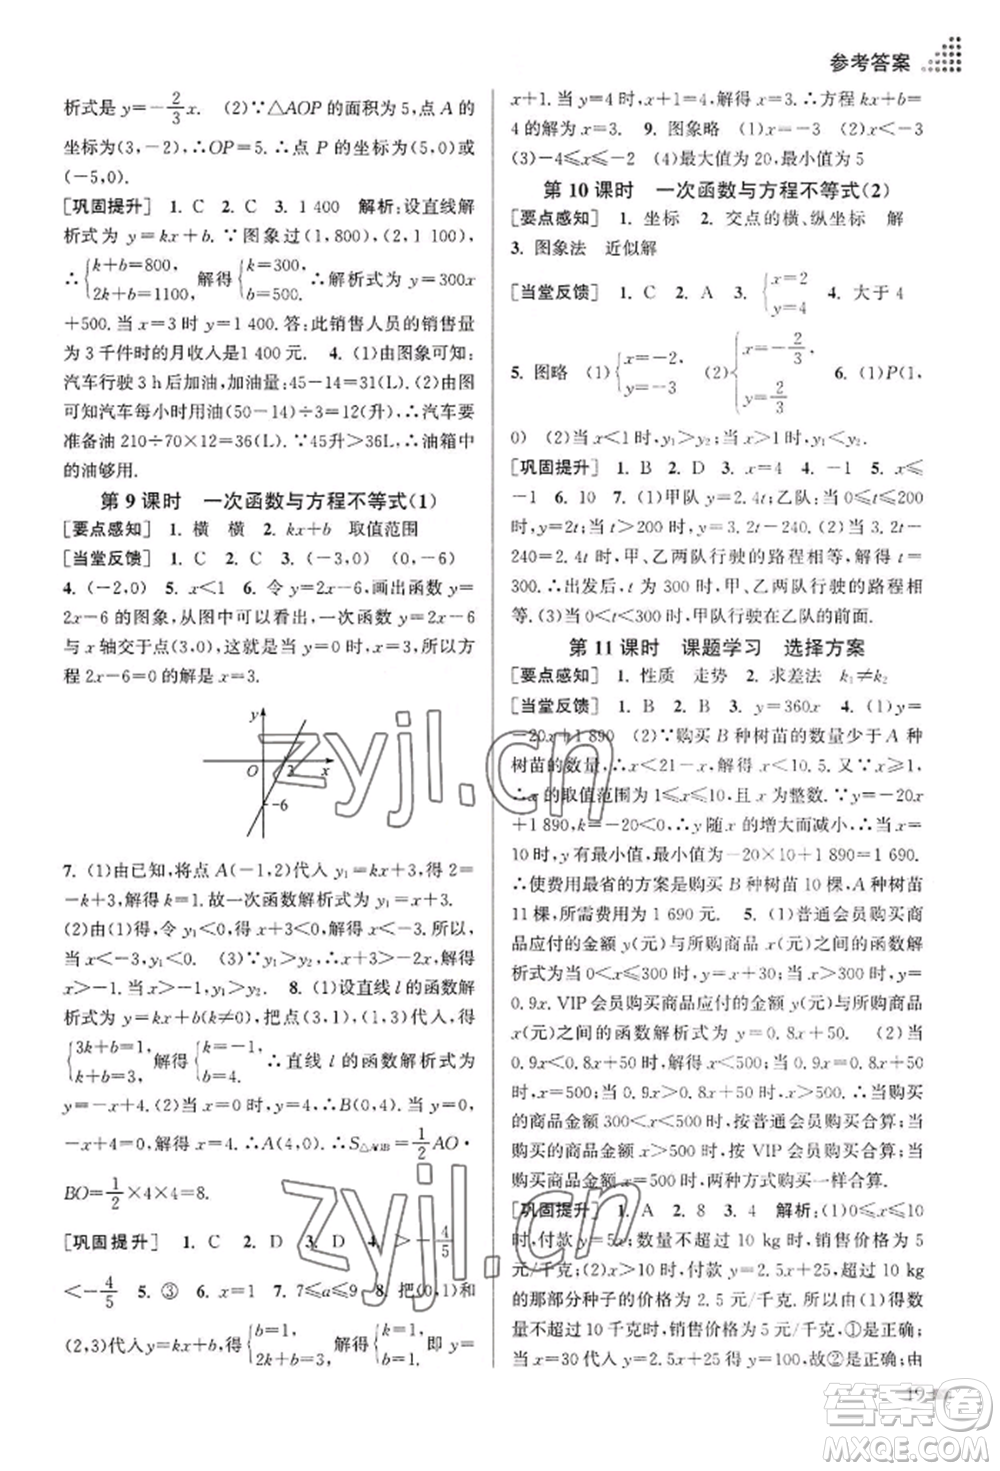 参考答案
析式是 y=-2/3x. (2)∵△AOP 的面积为 5,点 A 的
坐标为(3,-2),∴OP=5.∴点 P 的坐标为(5,0)或
(-5,0).
[巩固提升] 1. C 2. C 3. 1 400 解析:设直线解
析式为 y=kx+b.∵图象过(1,800),(2,1 100),
∴{k+b=800, 2k+b=1100, 解得{k=300, b=500. ∴解析式为 y=300x
+500.当 x=3 时 y=1 400.答:此销售人员的销售量
为 3 千件时的月收入是1 400 元. 4. (1)由图象可知:
汽车行驶 3 h后加油,加油量:45-14=31(L). (2)由图
可知汽车每小时用油(50-14)÷3=12(升),∴汽车要
准备油 210÷70×12=36(L).∵45升>36L,∴油箱中
的油够用.
第 9 课时 一次函数与方程不等式(1)
[要点感知] 1. 横 横 2. kx+b 取值范围
[当堂反馈] 1. C 2. C 3. (-3,0) (0,-6)
4. (-2,0) 5. x<1 6. 令 y=0,画出函数 y=
2x-6 的图象,从图象可以看出,一次函数 y=2x-6
与 x 轴交于点(3,0),这就是所求方程的解,所以方
程 2x-6=0 的解是 x=3.
y
O 3 x
-6
7. (1)由已知,将点 A(-1,2)代入 y₁=kx+3,得2=
-k+3.解得 k=1.故一次函数解析式为 y₁=x+3.
(2)由(1)得,令 y₁<0,得 x+3<0.解得 x<-3.所以,
当x<-3,y₁<0. (3)∵y₁>y₂,∴x+3>-2x.解得
x>-1.当 x>-1 时,y₁>y₂. 8. (1)设直线 l 的解
析式为 y=kx+b(k≠0),把点(3,1),(1,3)代入,得
{3k+b=1, k+b=3, 解得{k=-1, b=4. ∴直线 l 的函数解析式为
y=-x+4. (2)当 x=0 时,y=4,∴B(0,4).当y=0,
-x+4=0.解得 x=4.∴A(4,0).∴S△AOB=1/2AO·
BO=1/2×4×4=8.
[巩固提升] 1. C 2. D 3. D 4. >-4/5
<-4/5 5. ③ 6. x=1 7. 7≤a≤9 8. 把(0,1)和
(2,3)代入y=kx+b,得{b=1, 2k+b=3, 解得{b=1, k=1. 即 y=
x+1.当 y=4 时,x+1=4,解得 x=3.∴方程 kx+b=
4的解为 x=3. 9. 图象略 (1)x=-2 (2)x<-2
(3)-4≤x≤-1 (4)最大值为 20,最小值为 5
第 10 课时 一次函数与方程不等式(2)
[要点感知] 1. 坐标 2. 交点的横、纵坐标 解
3. 图象法 近似解
[当堂反馈] 1. C 2. A 3. {x=2 y=4 4. 大于 4
5. 图略 (1){x=-2, y=-3 (2){x=-2/3, y=2/3 6. (1)P(1,
0) (2)当 x<1 时,y₁>y₂;当 x>1 时,y₁<y₂
[巩固提升] 1. B 2. D 3. x=4 4. -1 5. x≤
-1 6. 10 7. (1)甲队:y=2.4t;乙队:当 0≤t≤200,
y=2t;当 t>200 时,y=3.2t-240. (2)当 3.2t-
240=2.4t 时,甲、乙两队行驶的路程相等,解得 t=
300.∴出发后,当 t为 300 时,甲、乙两队行驶的路程相
等. (3)当 0<t<300 时,甲队行驶在乙队的前面.
第 11 课时 课题学习 选择方案
[要点感知] 1. 性质 走势 2. 求差法 k₁≠k₂
[当堂反馈] 1. B 2. B 3. y=360x 4. (1)y=
-20x+1 890 (2)∵购买 B 种树苗的数量少于 A 种
树苗的数量,∴x<21-x.解得 x<10.5.又∵x≥1,
∴x 的取值范围为 1≤x≤10,且 x 为整数.∵y=-20x
+1 890,k=-20<0,∴y 随 x 的增大而减小,∴当 x=
10 时,y 有最小值,最小值为-20×10+1 890=1 690.
∴使费用最省的方案是购买 B 种树苗 10 棵,A 种树苗
11 棵,所需费用为1 690 元. 5. (1)普通会员购买商
品应付的金额 y(元)与所购商品 x(元)之间的函数解
析式为:当 0<x≤300 时,y=x;当 x>300 时,y=
0.9x. VIP 会员购买商品应付的金额 y(元)与所购商品
x(元)之间的函数解析式为 y=0.8x+50. (2)当
0.9x<0.8x+50 时,解得 x<500;当 0.9x=0.8x+50
时,x=500;当 0.9x>0.8x+50 时,x>500.∴当购买
的商品金额 300<x<500 时,按普通会员购买合算;当
购买的商品金额 x>500 时,按 VIP 会员购买合算;当
购买商品金额 x=500 时,两种方式购买一样合算.
[巩固提升] 1. A 2. 8 3. 4 解析:(1)0≤x≤10
时,付款 y=5x,相应的千克数时,销售价格为 5
元/千克;(2)x>10 时,付款 y=2.5x+25 相应超过 10 kg
的那部分种子的价格为 2.5 元/千克,①是正确;数量
不超过 10 千克时,销售价格为 5 元/千克,②是正确;
当 x=30 代入 y=2.5x+25 得 y=100,故②正确;由
19
zyjl.cn
zyjl.cn
答案圈
MXQE.COM